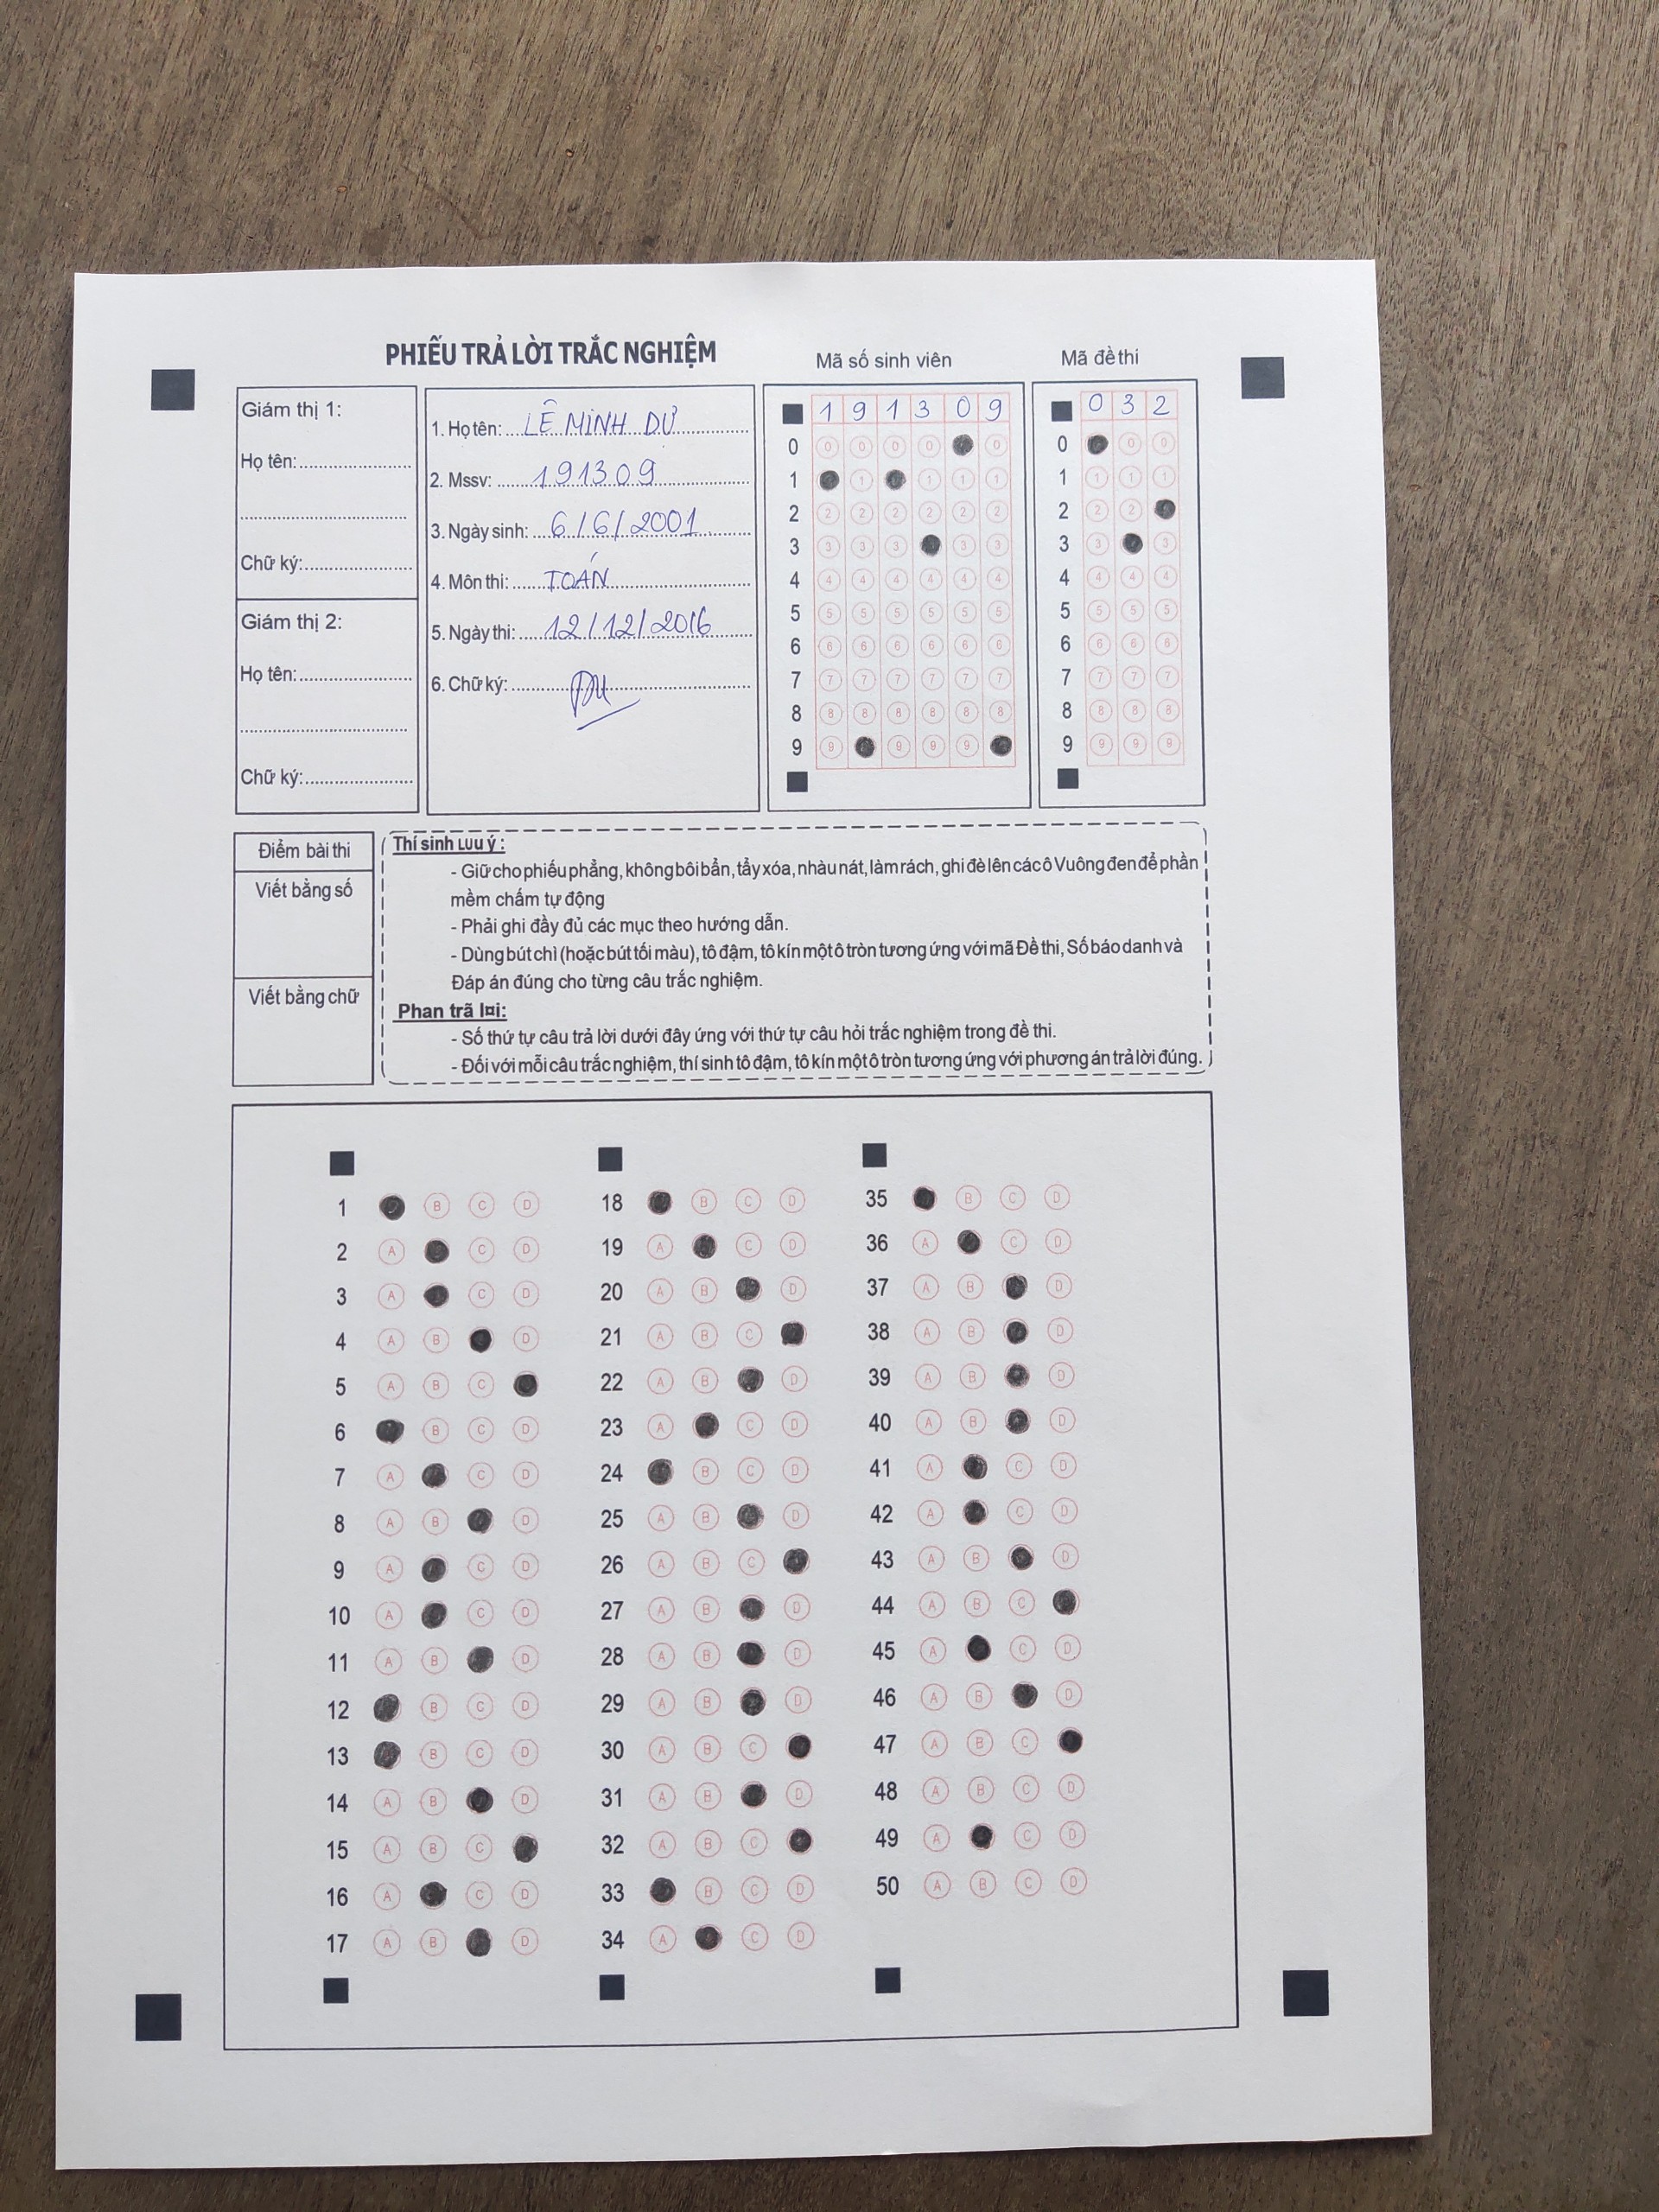 PHIẾU TRẢ LỜI TRẮC NGHIỆM
Mã số sinh viên
Mã đề thi
Giám thị 1:
Họ tên:
Chữ ký:
Giám thị 2:
Họ tên:
Chữ ký:
1. Họ tên: LÊ MINH DỰ
2. Mssv: 191309
3. Ngày sinh: 6/6/2001
4. Môn thi: TOÁN
5. Ngày thi: 12/12/2016
6. Chữ ký:
1 9 1 3 0 9
0 0 0 0 0 0
1 1 1 1 1
2 2 2 2 2 2 2
3 3 3 3 3 3
4 4 4 4 4 4 4
5 5 5 5 5 5 5
6 6 6 6 6 6 6
7 7 7 7 7 7 7
8 8 8 8 8 8 8
9 9 9 9 9
0 3 2
0 0 0
1 1 1 1
2 2 2
3 3 3
4 4 4 4
5 5 5 5
6 6 6 6
7 7 7 7
8 8 8 8
9 9 9 9
Điểm bài thi
Viết bằng số
Viết bằng chữ
Thí sinh Lưu ý :
- Giữ cho phiếu phẳng, không bôi bẩn, tẩy xóa, nhàu nát, làm rách, ghi đè lên các ô Vuông đen để phần
mềm chấm tự động
- Phải ghi đầy đủ các mục theo hướng dẫn.
- Dùng bút chì (hoặc bút tối màu), tô đậm, tô kín một ô tròn tương ứng với mã Đề thi, Số báo danh và
Đáp án đúng cho từng câu trắc nghiệm.
Phan trã l¤i:
- Số thứ tự câu trả lời dưới đây ứng với thứ tự câu hỏi trắc nghiệm trong đề thi.
- Đối với mỗi câu trắc nghiệm, thí sinh tô đậm, tô kín một ô tròn tương ứng với phương án trả lời đúng.
1 B C D
2 A C D
3 A C D
4 A B D
5 A B C
6 B C D
7 A C D
8 A B D
9 A C D
10 A C D
11 A B D
12 B C D
13 B C D
14 A B D
15 A B C
16 A C D
17 A B D
18 B C D
19 A C D
20 A B D
21 A B C
22 A B D
23 A C D
24 B C D
25 A B D
26 A B C
27 A B D
28 A B D
29 A B D
30 A B C
31 A B D
32 A B C
33 B C D
34 A C D
35 B C D
36 A C D
37 A B D
38 A B D
39 A B D
40 A B D
41 A C D
42 A C D
43 A B D
44 A B C
45 A C D
46 A B D
47 A B C
48 A B C D
49 A C D
50 A B C D